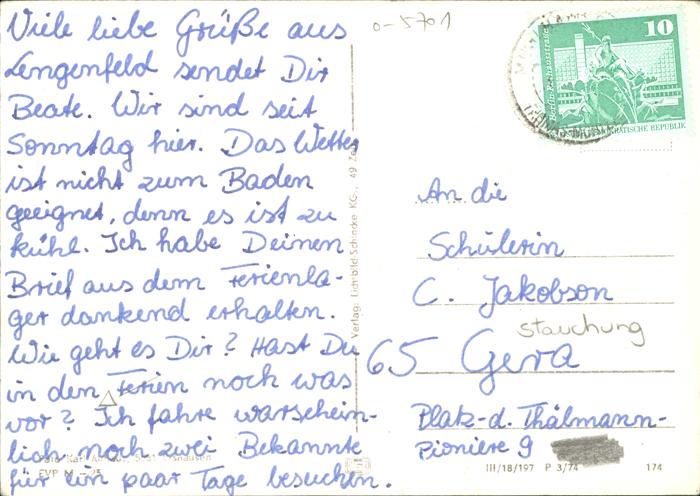 Viele liebe Grüße aus
Lengenfeld sendet Dir
Beate. Wir sind seit
Sonntag hier. Das Wetter
ist nicht zum Baden
geeignet, denn es ist zu
kühl. Ich habe Deinen
Brief aus dem Ferienla-
ger dankend erhalten.
Wie geht es Dir? Hast Du
in den Ferien noch was
vor? Ich fahre warschein-
lich noch zwei Bekannte
für ein paar Tage besuchen.
Verlag: Lichtbild-Schincke KG.,
o-5701
10
Berlin, Rathausstraße
An die
Schülerin
C. Jakobson
Stauchung
65 Gera
Platz-d. Thälmann-
Pioniere 9
III/18/197 P 3/74 174